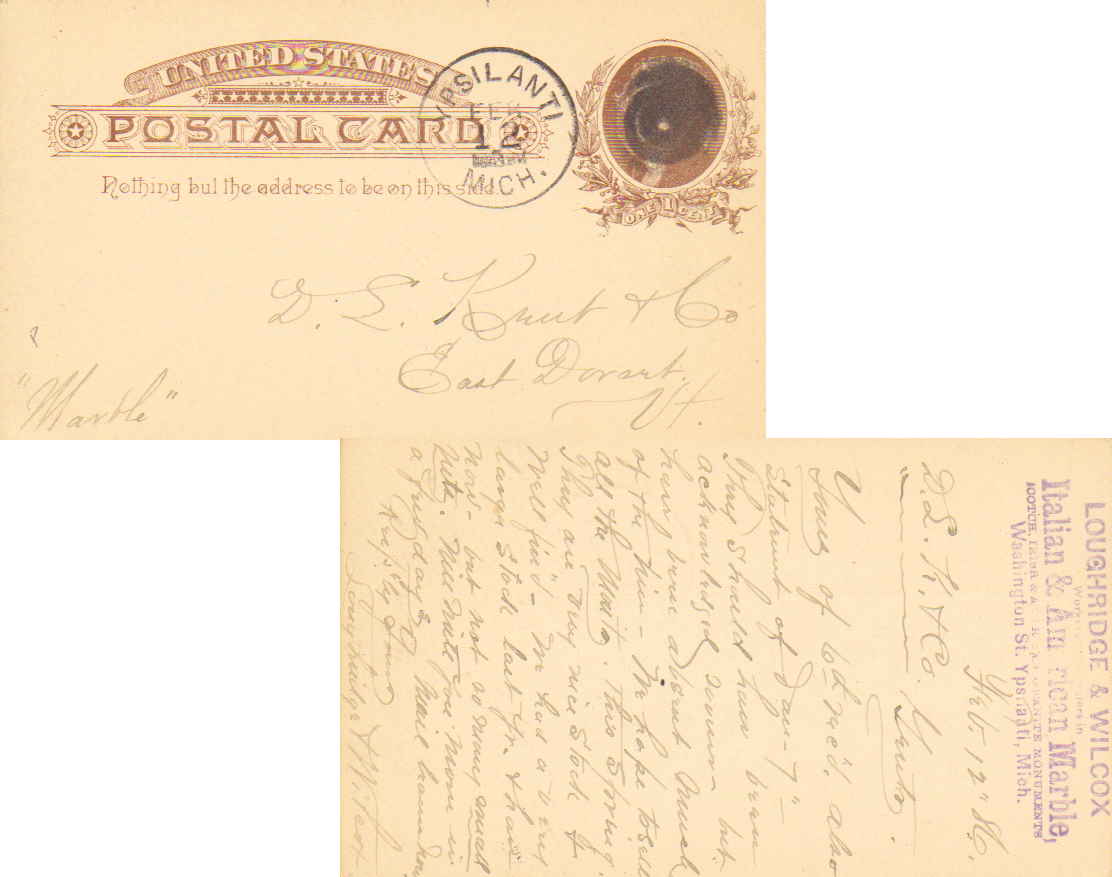 UNITED STATES
POSTAL CARD
Nothing but the address to be on this side.
YPSILANTI
FEB
12
MICH.
ONE 1 CENT
D. L. Kent & Co
East Dorset.
Vt.
"Marble"
LOUGHRIDGE & WILCOX
Workers in
Italian & American Marble,
SCOTCH, IRISH & GRANITE MONUMENTS
Washington St. Ypsilanti, Mich.
Feb. 12" 86.
D. L. K. & Co.
Gents,
Yours of 6th recd. also
Statement of Jan - 7" -
They should have been
acknowledged sooner but
have been absent much
of the time - We hope to sell
all the this Spring.
They are very nice Stock &
Well fin'd - We had a very
large Stock last yr. & have
now - but not so many small
Will write you more in
a few days & will send
Resp'ly Yours
Loughridge & Wilcox